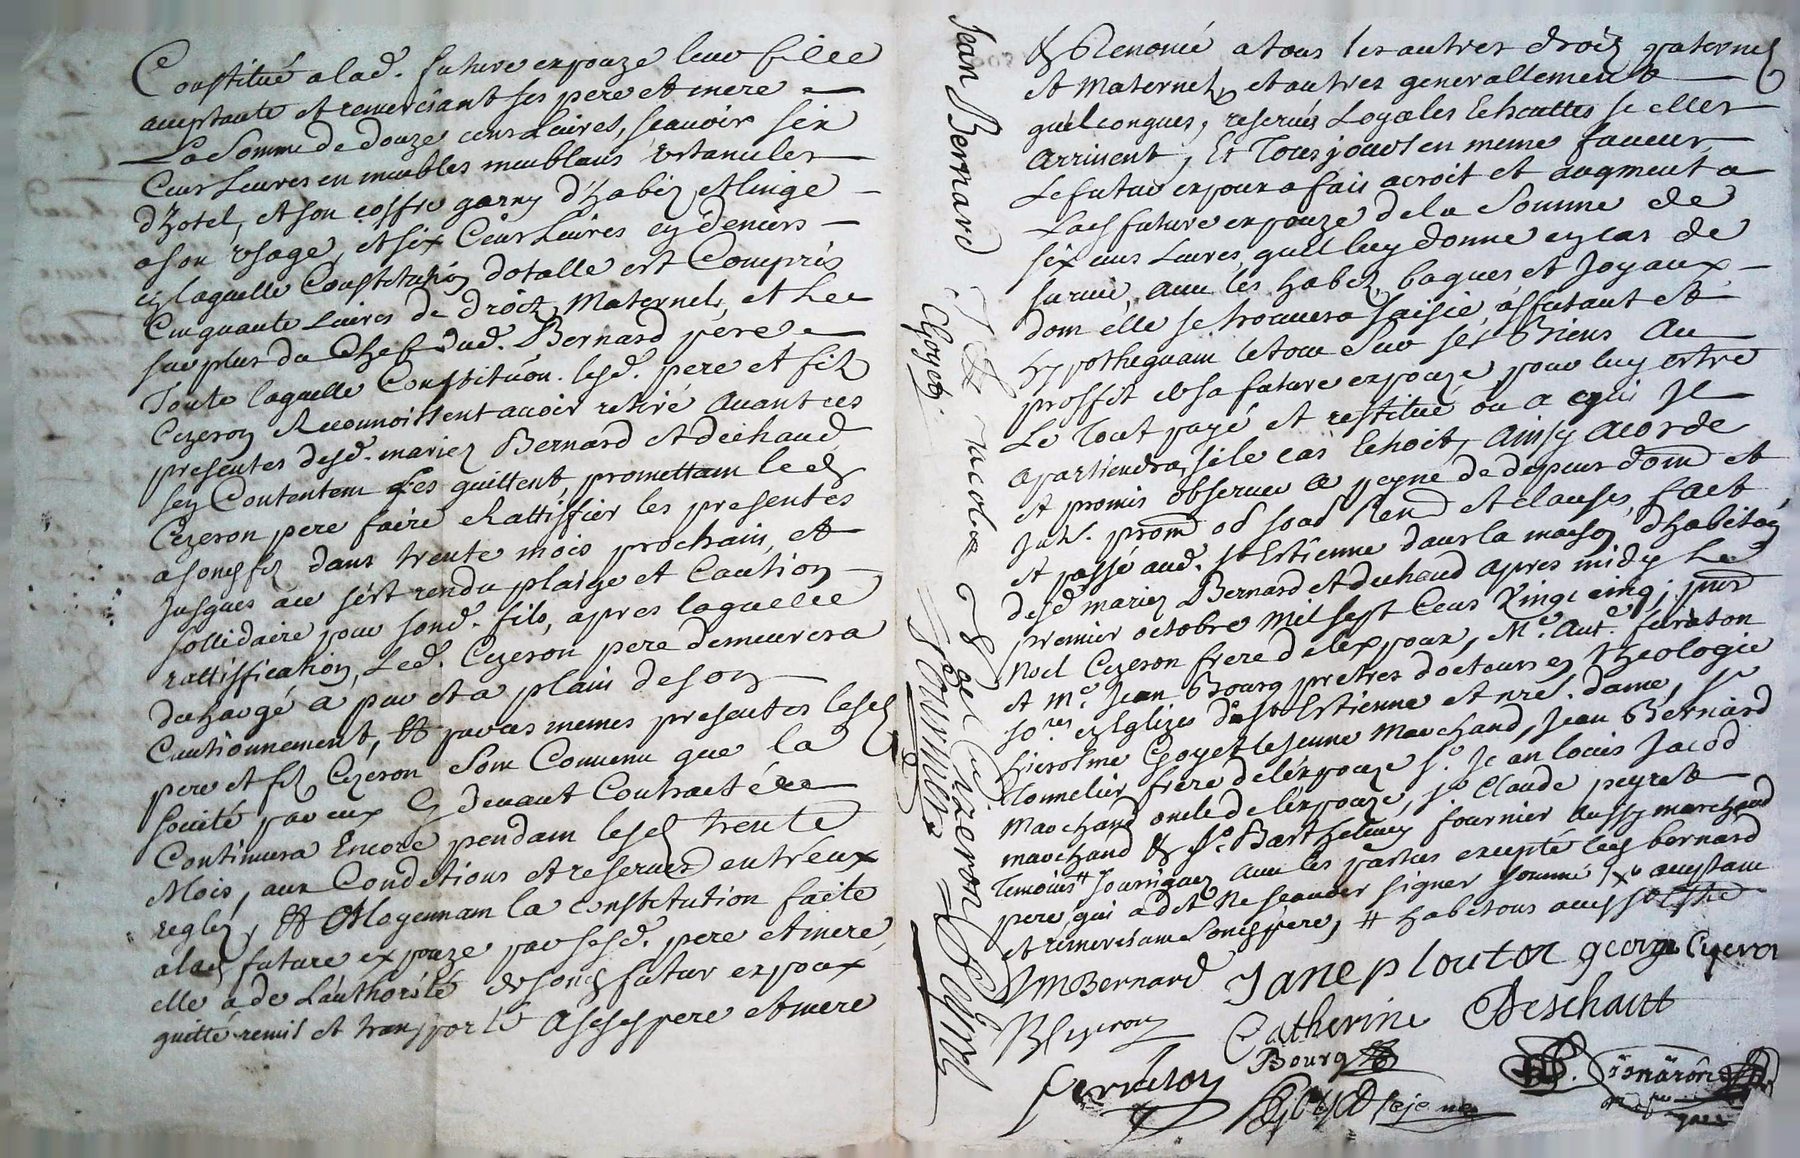 Constitué a lad. future expouze leur fille
acceptante et remerciant ses pere et mere
La Somme de douze cens Livres, scauoir six
Cens Livres en meubles meublans vstancilles
d'hotel, et son coffre garny d'habiz et linge
a son vsage, et six Cens Livres en deniers
en laquelle Constitution dotalle est Compris
Cinquante Livres de droitz Maternelz, et Le
surplus du Chef dud. Bernard pere
Toute laquelle Constitution. lesd. pere et filz
Cizeron Recounoissent auoir retiré auant ces
presentes desd. mariez Bernard et dechaud
s'en Contentent Les quittent, promettant led.
Cizeron pere faire Rattiffier les presentes
a sond. filz dans trente mois prochain, et
Jusques a ce s'est rendu plaige et Caution
sollidaire pour sond. fils, apres laquelle
rattiffication, Led. Cizeron pere demeurera
dechargé a pur et a plain de son
Cautionnement, Et par ces memes presentes lesd.
pere et filz Cizeron Sont Conuenu que la
societé par eux Cy deuant Contractée
Continuera Encore pendant lesd. trente
Mois, aux Conditions et reserues entr'eux
reglez, Et Moyennant la constitution faite
a lad. future expouze par sesd. pere et mere,
elle a de L'authorité de sond. futur expoux
quitté remis et transporté a sesd. pere et mere
& Renoncé a tous les autres droitz paternelz
et Maternelz, et autres generallement
quelconques, reserués Loyales Echeuttes si elles
Arriuent, Et Tousjours en meme faueur
Le futur expoux a fait acroit et augment a
Lad. future expouze de la Somme de
six cens Livres, qu'il luy donne en cas de
suruie, auec les habiz, bagues et Joyaux
dont elle se trouuera saisie, affutant et
hypothequant le tout Sur ses Biens Au
proffit de sa future expouze pour luy estre
Le Tout payé et restitué ou a celui Il
apartiendra, si le cas Echoit, Ainsy acorde
et promis obseruer a peyne de depens dom. et
Jnts. prom. ob. soub. Ren. et clauses, fact
et passé aud. St Estienne dans la maison d'habitaon
desd. mariez Bernard et dechaud apres midy Le
premier octobre Mil sept Cens Vingt cinq; pnts
Noel Cizeron frere de l'expoux, Me. Ant. ferraton
et Me. Jean Bourg pretres docteurs en theologie
es Eglizes de St Estienne et nre. dame, Sr
hierosme Goyet lejeune Marchand, Jean Bernard
Tonnelier, frere de l'expouze Sr. Jean louis Jacod
Marchand oncle de l'expouze, Sr Claude peyret
marchand & Sr. Barthelemy fournier Aussy marchand
Temoins # soussignez auec les parties excepté led. bernard
pere qui a dit Ne scauoir signer sommé, acceptant
et remerciant Sond. pere, # habitans aud. St Estne
JM Bernard Jane ploutor george Cizeron
N Cizeron Catherine Deschaut
Bourg
ferraton Goyet lejeune
Jean Bernard
J L Jacod
C Peyret
Cizeron
fournier